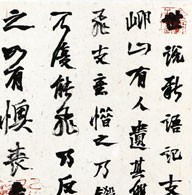 說新語記
岇山有人遺其
飛支意惜之乃
不復能飛乃反
之如有懊喪